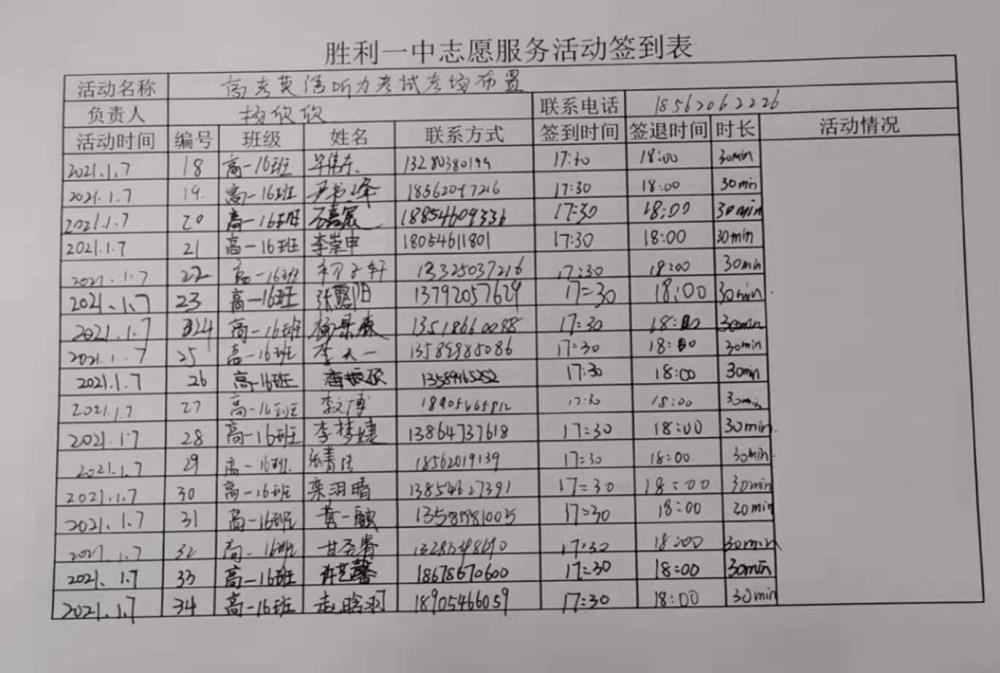 胜利一中志愿服务活动签到表
活动名称 高考英语听力考试考场布置
负责人 杨欣欣 联系电话 18562062226
活动时间 编号 班级 姓名 联系方式 签到时间 签退时间 时长 活动情况
2021.1.7 18 高一16班 17:30 18:00 30min
2021.1.7 19. 高一16班 18562097216 17:30 18:00 30min
2021.1.7 20 高一16班 18854609336 17:30 18:00 30min
2021.1.7 21 高一16班 李崇申 18054611801 17:30 18:00 30min
2021.1.7 22 高一16班 13325037216 17:30 18:00 30min
2021.1.7 23 高一16班 13792057629 17:30 18:00 30min
2021.1.7 24 高一16班 杨景森 13518660088 17:30 18:00 30min
2021.1.7 25 高一16班 李天一 13589985086 17:30 18:00 30min
2021.1.7 26 高一16班 17:30 18:00 30min
2021.1.7 27 高一16班 李文博 17:30 18:00 30min
2021.1.7 28 高一16班 李梦婕 13864737618 17:30 18:00 30min
2021.1.7 29 高一16班 18562019139 17:30 18:00 30min
2021.1.7 30 高一16班 栾羽晴 13854627391 17:30 18:00 30min
2021.1.7 31 高一16班 黄一融 17:30 18:00 20min
2021.1.7 32 高一16班 17:30 18:00 30min
2021.1.7 33 高一16班 许艺馨 18678670600 17:30 18:00 30min
2021.1.7 34 高一16班 赵晗羽 18905466059 17:30 18:00 30min